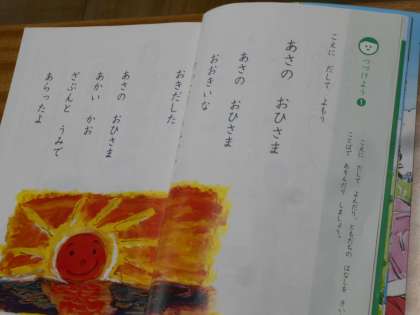 つづけよう 1
こえに だして よんだり、ともだちの はなしを きい
ことばで あそんだり しましょう。
こえに だして よもう
あさの おひさま
あさの おひさま
おおきいな
おきだした
あさの おひさま
あかい かお
ざぶんと うみで
あらったよ